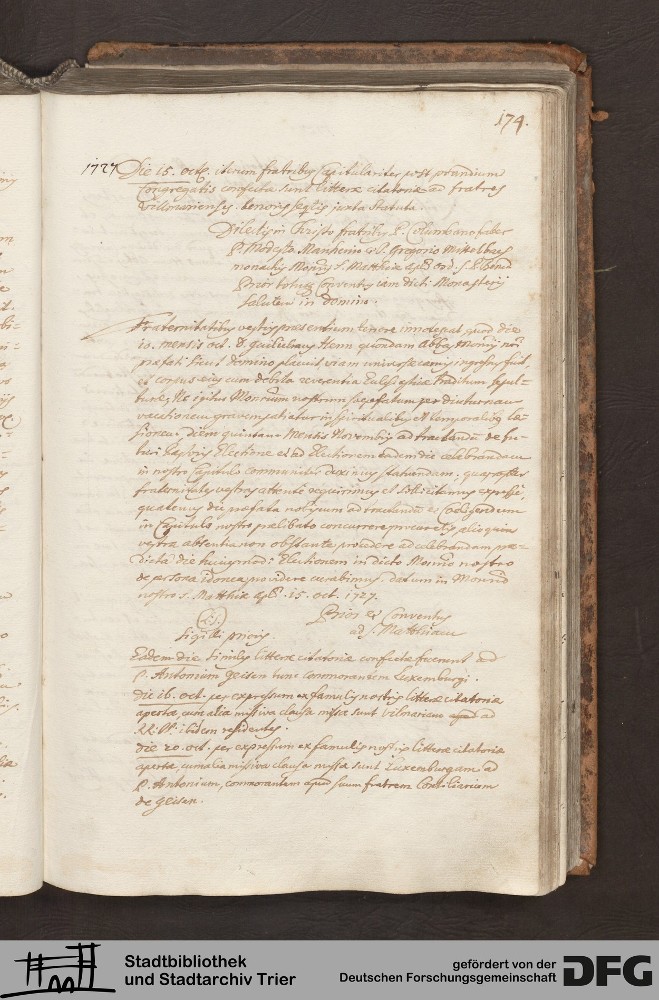 174.
1727 Die 15. octb. iterum fratribus Capitulariter post prandium
congregatis confectæ sunt litteræ citatoriæ ad fratres
Villmarienses tenoris seqtis juxta statuta.
Dilectis in Christo fratribus P. Columbano faber
P. Modesto Manheim et P. Gregorio
monachis Monrij S. Matthiæ Apli ord. S. P. Bened
Prior totusq Conventus iam dicti Monasterij
salutem in Domino.
Fraternitatibus vestris præsentium tenore innotescat quod die
10. mensis oct. D. Guilielmus Henn quondam Abbas Monrij nri
præfati sicut domino placuit viam universæ carnis ingressus fuit,
et corpus eius cum debita reverentia Ecclesiasticæ traditum sepul-
turæ, Ne igitur Monrium nostrum sæpefatum per diuturnam
vacationem gravem patiatur in spiritualibus et temporalibus læ-
sionem. Diem quintam Mensis Novembris ad tractandum de fu-
turi Pastoris Electione et ad Electionem eadem die celebrandam
in nostro Capitulo communiter duximus statuendam; quapropter
fraternitates vestras attente requirimus et sollicitamus expresse,
quatenus die præfata nobiscum ad tractandum et eligendum
in Capitulo nostro prælibato concurrere procuretis, alioquin
vestra absentia non obstante, procedere ad celebrandam præ-
dicta die huiusmodi Electionem in dicto Monrio nostro
de persona idonea providere curabimus. datum in Monrio
nostro S. Matthiæ Apli. 15. oct. 1727.
L.S. Prior et Conventus
Sigilli prioris. ad S. Matthiam
Eadem die similes litteræ citatoriæ confectæ fuerunt ad
P. Antonium Geisen tunc commorantem Luxemburgi.
die 16. oct. per expressum ex famulis nostris litteræ citatoriæ
apertæ, cum alia missiva clausa missæ sunt Vilmariam ad
RR. PP. ibidem residentes.
die 20. oct. per expressum ex famulis nostris litteræ citatoriæ
apertæ, cum alia missiva clausa missæ sunt Luxemburgum ad
P. Antonium, commorantem apud suum fratrem Consiliarium
de Geisen.
Stadtbibliothek
und Stadtarchiv Trier
gefördert von der
Deutschen Forschungsgemeinschaft
DFG